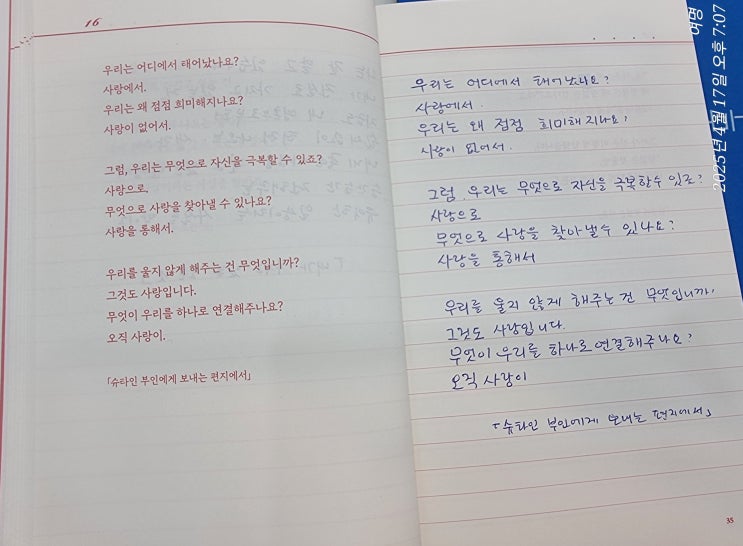 16
우리는 어디에서 태어났나요?
사랑에서.
우리는 왜 점점 희미해지나요?
사랑이 없어서.
그럼, 우리는 무엇으로 자신을 극복할 수 있죠?
사랑으로,
무엇으로 사랑을 찾아낼 수 있나요?
사랑을 통해서.
우리를 울지 않게 해주는 건 무엇입니까?
그것도 사랑입니다.
무엇이 우리를 하나로 연결해주나요?
오직 사랑이.
「슈타인 부인에게 보내는 편지에서」
우리는 어디에서 태어났나요?
사랑에서.
우리는 왜 점점 희미해지나요?
사랑이 없어서.
그럼, 우리는 무엇으로 자신을 극복할수 있죠?
사랑으로
무엇으로 사랑을 찾아낼수 있나요?
사랑을 통해서
우리를 울지 않게 해주는건 무엇입니까,
그것도 사랑입니다.
무엇이 우리를 하나로 연결해주나요?
오직 사랑이
「슈타인 부인에게 보내는 편지에서」
35
여명
2025년 4월 17일 오후 7:07